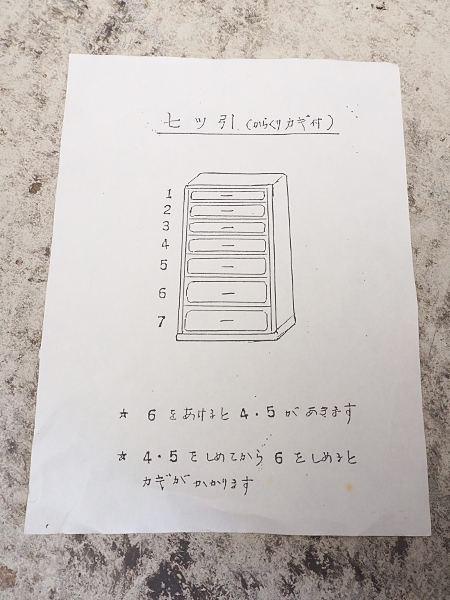 七ッ引(からくりカギ付)
1
2
3
4
5
6
7
☆ 6をあけると4・5があきます
☆ 4・5をしめてから6をしめると
カギがかかります